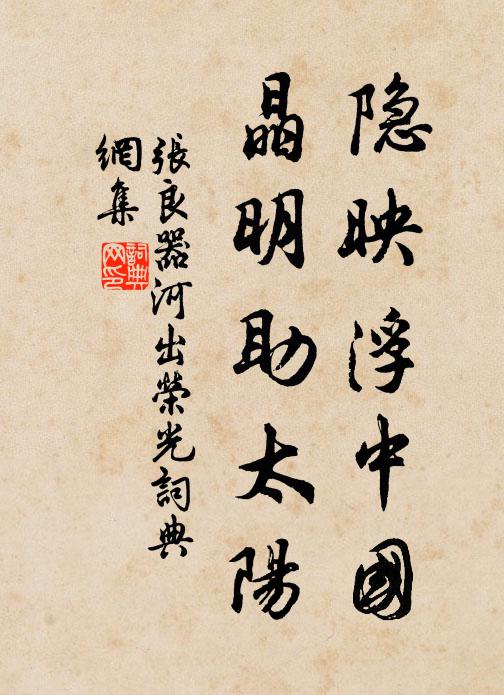 隐映浮中國
晶明助太陽
張良器河出榮光詞典
網集
詞典
网印